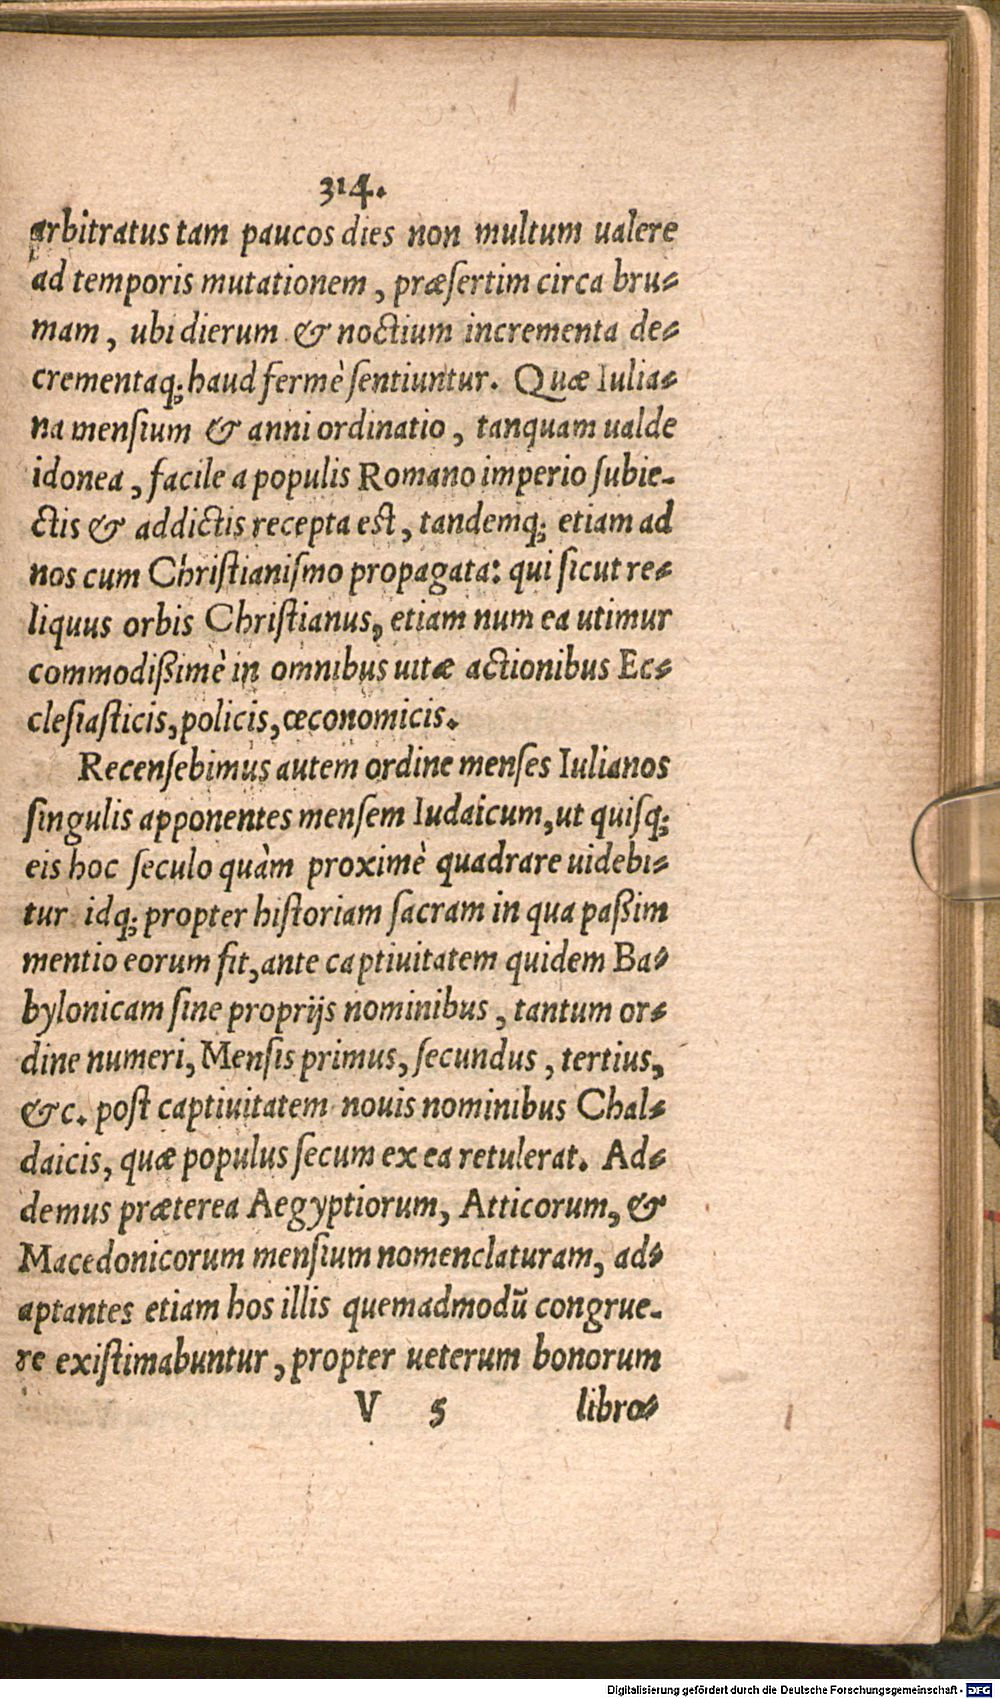 314.
arbitratus tam paucos dies non multum ualere
ad temporis mutationem, præſertim circa bru-
mam, ubi dierum & noctium incrementa de-
crementaq; haud fermè ſentiuntur. Quæ Iulia-
na menſium & anni ordinatio, tanquam ualde
idonea, facile a populis Romano imperio ſubie-
ctis & addictis recepta est, tandemq; etiam ad
nos cum Chriſtianiſmo propagata: qui ſicut re-
liquus orbis Chriſtianus, etiam num ea utimur
commodißimè in omnibus uitæ actionibus Ec-
cleſiaſticis, policis, œconomicis.
Recenſebimus autem ordine menſes Iulianos
ſingulis apponentes menſem Iudaicum, ut quiſq;
eis hoc ſeculo quàm proximè quadrare uidebi-
tur idq; propter hiſtoriam ſacram in qua paßim
mentio eorum fit, ante captiuitatem quidem Ba-
bylonicam ſine proprijs nominibus, tantum or-
dine numeri, Menſis primus, ſecundus, tertius,
&c. poſt captiuitatem nouis nominibus Chal-
daicis, quæ populus ſecum ex ea retulerat. Ad-
demus præterea Aegyptiorum, Atticorum, &
Macedonicorum menſium nomenclaturam, ad-
aptantes etiam hos illis quemadmodū congrue-
re exiſtimabuntur, propter ueterum bonorum
V 5 libro-
Digitalisierung gefördert durch die Deutsche Forschungsgemeinschaft - DFG